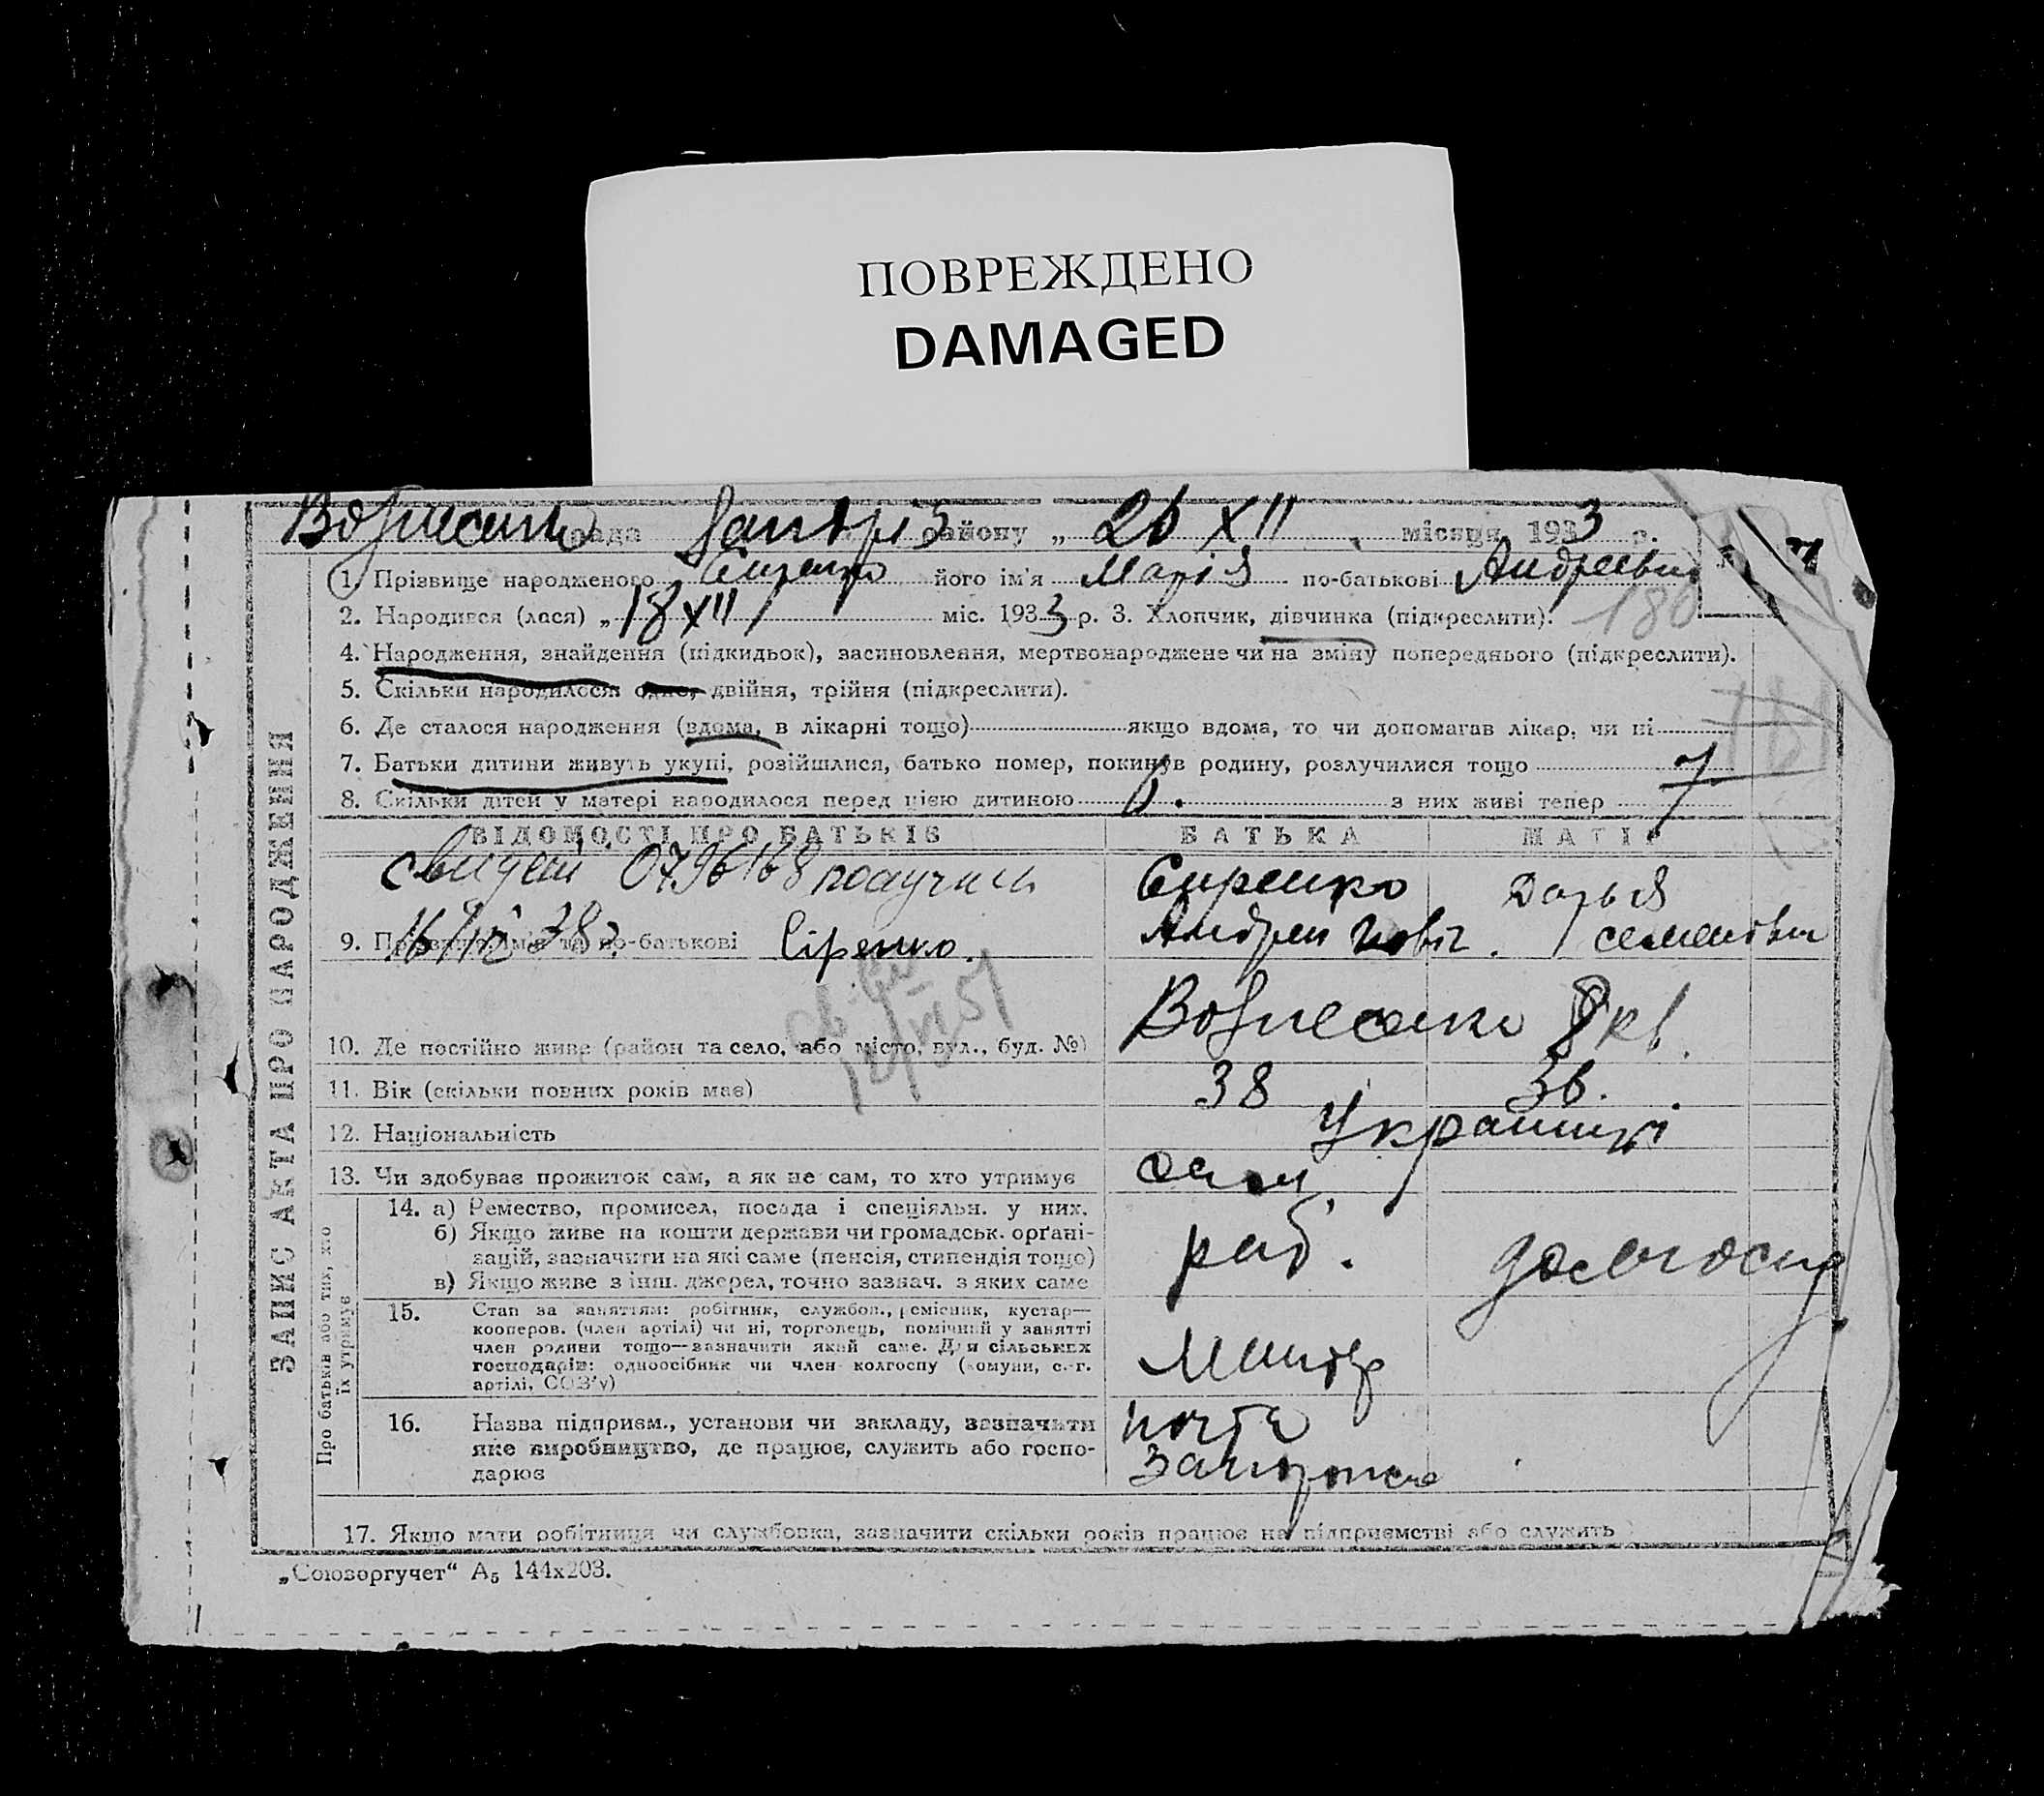 ПОВРЕЖДЕНО
DAMAGED
рада району „ 26 XII місяця 1933 р.
1. Прізвище народженого Сиренко його ім'я Марія по-батькові Андреевна
2. Народився (лася) „ 18 XII міс. 1933 р. 3. Хлопчик, дівчинка (підкреслити).
180
4. Народження, знайдення (підкидьок), засиновлення, мертвонароджене чи на зміну попереднього (підкреслити).
5. Скільки народилося: одно, двійня, трійня (підкреслити).
6. Де сталося народження (вдома, в лікарні тощо) якщо вдома, то чи допомагав лікар, чи ні
7. Батьки дитини живуть укупі, розійшлися, батько помер, покинув родину, розлучилися тощо
8. Скільки дітей у матері народилося перед цією дитиною 6. з них живі тепер 7
ВІДОМОСТІ ПРО БАТЬКІВ БАТЬКА МАТІР
0796168 Сиренко Дарья
9. Прізвище, ім'я та по-батькові Сіренко. Андрей семеновна
10. Де постійно живе (район та село, або місто, вул., буд. №) 8 кв.
11. Вік (скільки повних років має) 38 36.
12. Національність Українці
13. Чи здобуває прожиток сам, а як не сам, то хто утримує сам
14. а) Ремество, промисел, посада і спеціяльн. у них.
б) Якщо живе на кошти держави чи громадськ. орґані-
зацій, зазначити на які саме (пенсія, стипендія тощо)
в) Якщо живе з інш. джерел, точно зазнач. з яких саме
раб. домогосп
15. Стан за заняттям: робітник, службов., ремісник, кустар—
кооперов. (член артілі) чи ні, торговець, помічний у занятті
член родини тощо—зазначити який саме. Для сільських
господарів: одноосібник чи член колгоспу (комуни, с.-г.
артілі, СОЗ'у)
16. Назва підприєм., установи чи закладу, зазначити
яке виробництво, де працює, служить або госпо-
дарює
почта
17. Якщо мати робітниця чи службовка, зазначити скільки років працює на підприємстві або служить
ЗАПИС АКТА ПРО НАРОДЖЕННЯ
Про батьків або тих, хто
їх утримує
„Союзоргучет“ А5 144х203.